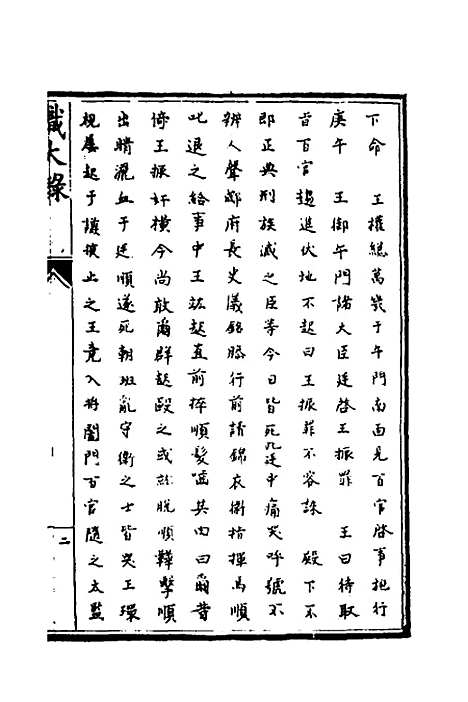 下命　王權總萬幾于午門南面見百官啓事把行
庚午　王御午門諸大臣廷啓王振罪　王曰待取
百百官趨進伏地不起曰王振罪不容誅　殿下不
即正典刑族滅之臣等今日皆死凡廷中痛哭呼號不
辨人聲郕府長史儀銘膝行前請錦衣衛指揮馬順
叱退之給事中王竑起直前捽順髮嚙其肉曰爾昔
倚王振奸橫今尚敢爾群起毆之或就脫順鞾擊順
出睛濺血于廷順遂死朝班亂守衛之士皆哭王環
視屢起于謙掖止之王竟入將闔門百官隨之太監
識大錄
二